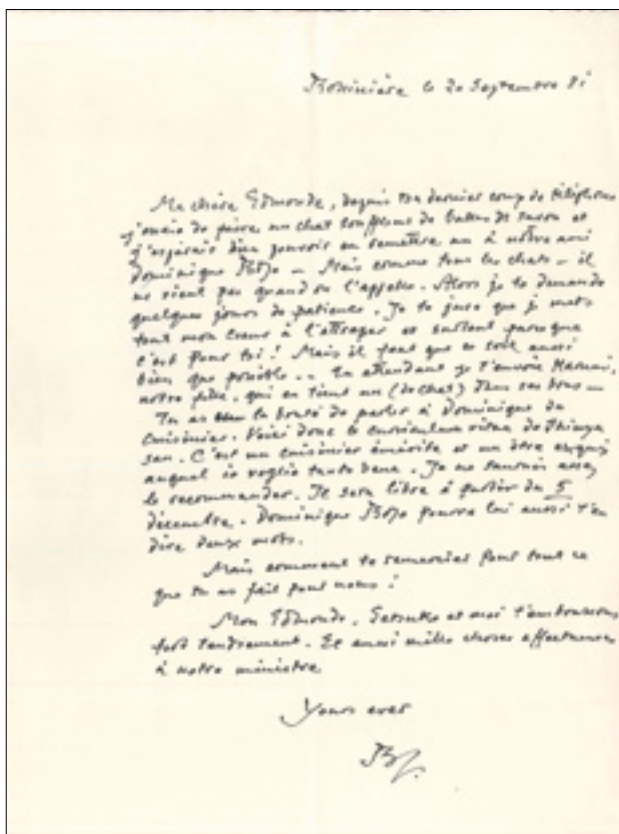 Rossinière le 20 Septembre 81
Ma chère Edmonde, depuis ton dernier coup de téléphone
j'essaie de faire un chat souffleur de bulles de savon et
j'espérais bien pouvoir en remettre un à notre ami
Dominique Bozo — Mais comme tous les chats — il
ne vient pas quand on l'appelle. Alors je te demande
quelques jours de patience. Je te jure que je mets
tout mon cœur à l'attraper et surtout parce que
c'est pour toi! Mais il faut que ce soit aussi
bien que possible.. En attendant je t'envoie Harumi,
notre fille, qui en tient un (de chat) dans ses bras —
Tu as eu la bonté de parler à Dominique du
cuisinier. Voici donc le curriculum vitae de Shinya
san. C'est un cuisinier émérite et un être exquis
auquel io voglio tanto bene. Je ne saurais assez
le recommander. Il sera libre à partir du 5
décembre. Dominique Bozo pourra lui aussi t'en
dire deux mots.
Mais comment te remercier pour tout ce
que tu as fait pour nous!
Mon Edmonde, Setsuko et moi t'embrassons
fort tendrement. Et aussi mille choses affectueuses
à notre ministre
Yours ever